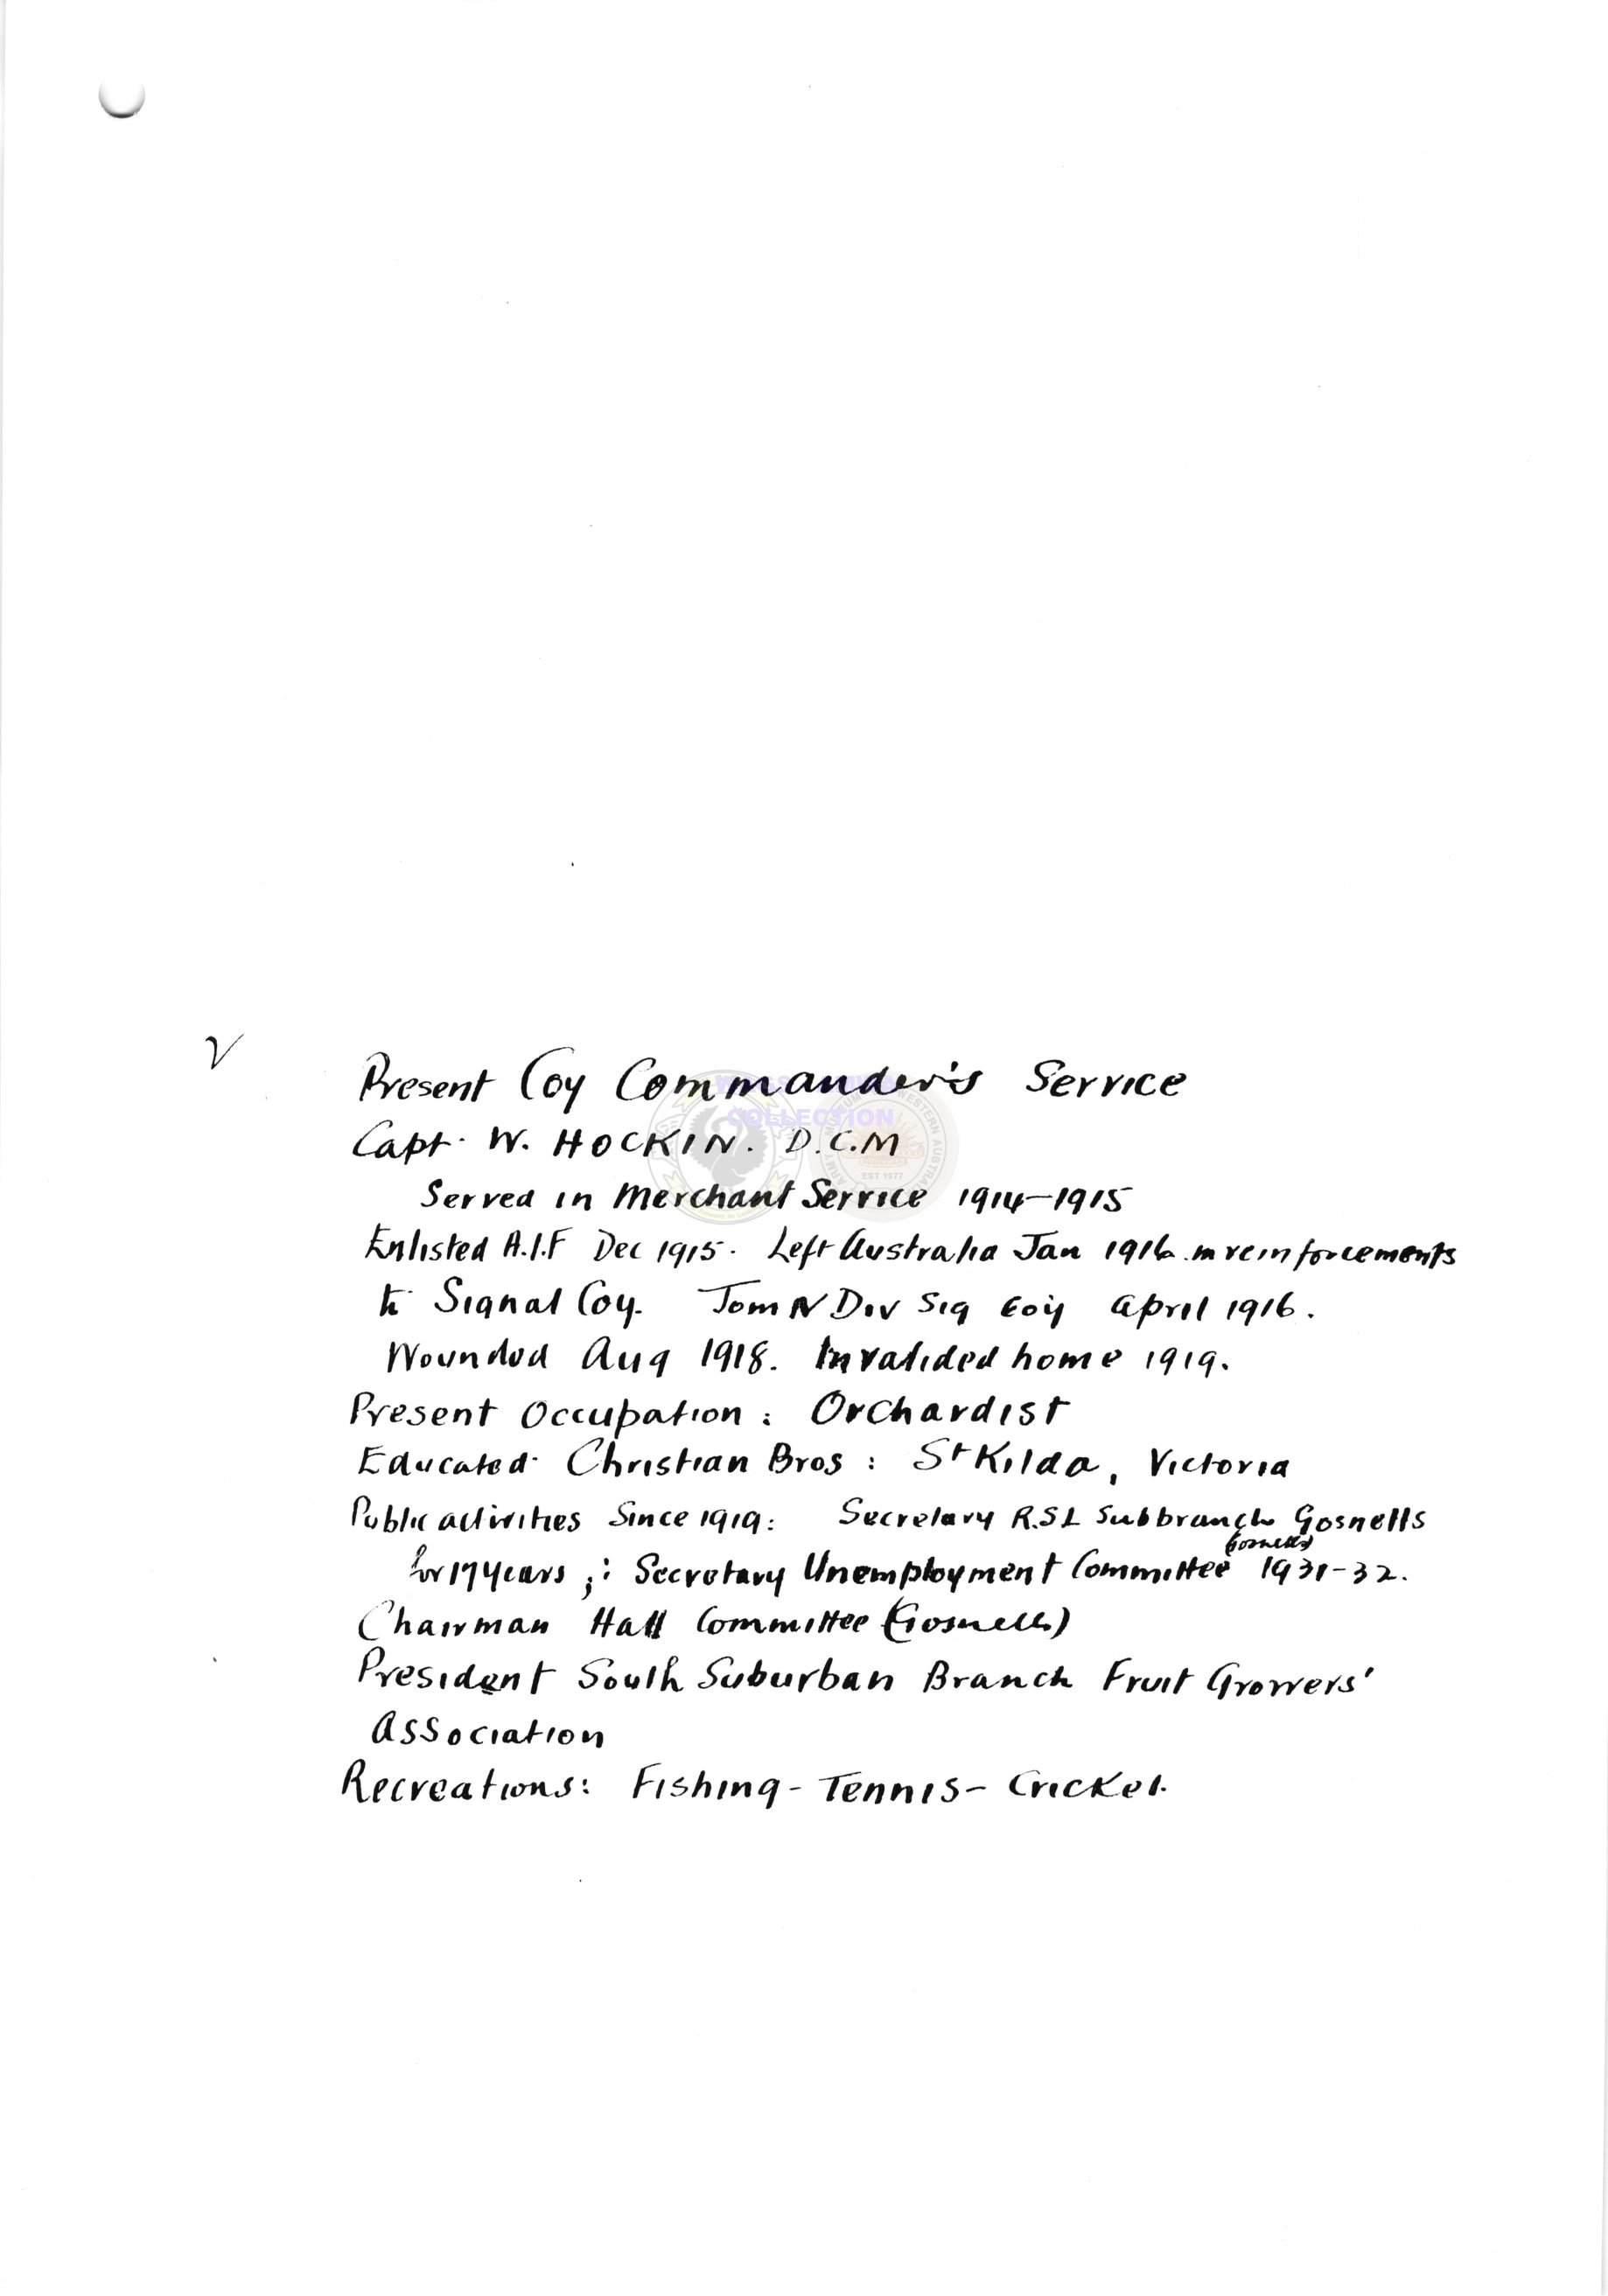 V
Present Coy Commander's Service
COLLECTION
Capt. W. HOCKIN. D.C.M
EST 1977
Served in Merchant Service 1914-1915
Enlisted A.I.F Dec 1915. Left Australia Jan 1916 in reinforcements
to Signal Coy. Join IV Div Sig Coy April 1916.
Wounded Aug 1918. Invalided home 1919.
Present Occupation: Orchardist
Educated Christian Bros: St Kilda, Victoria
Public activities Since 1919: Secretary R.S.L Subbranch Gosnells
for 17 years ;: Secretary Unemployment Committee Gosnells 1931-32.
Chairman Hall Committee (Gosnells)
President South Suburban Branch Fruit Growers'
Association
Recreations: Fishing - Tennis - Cricket.